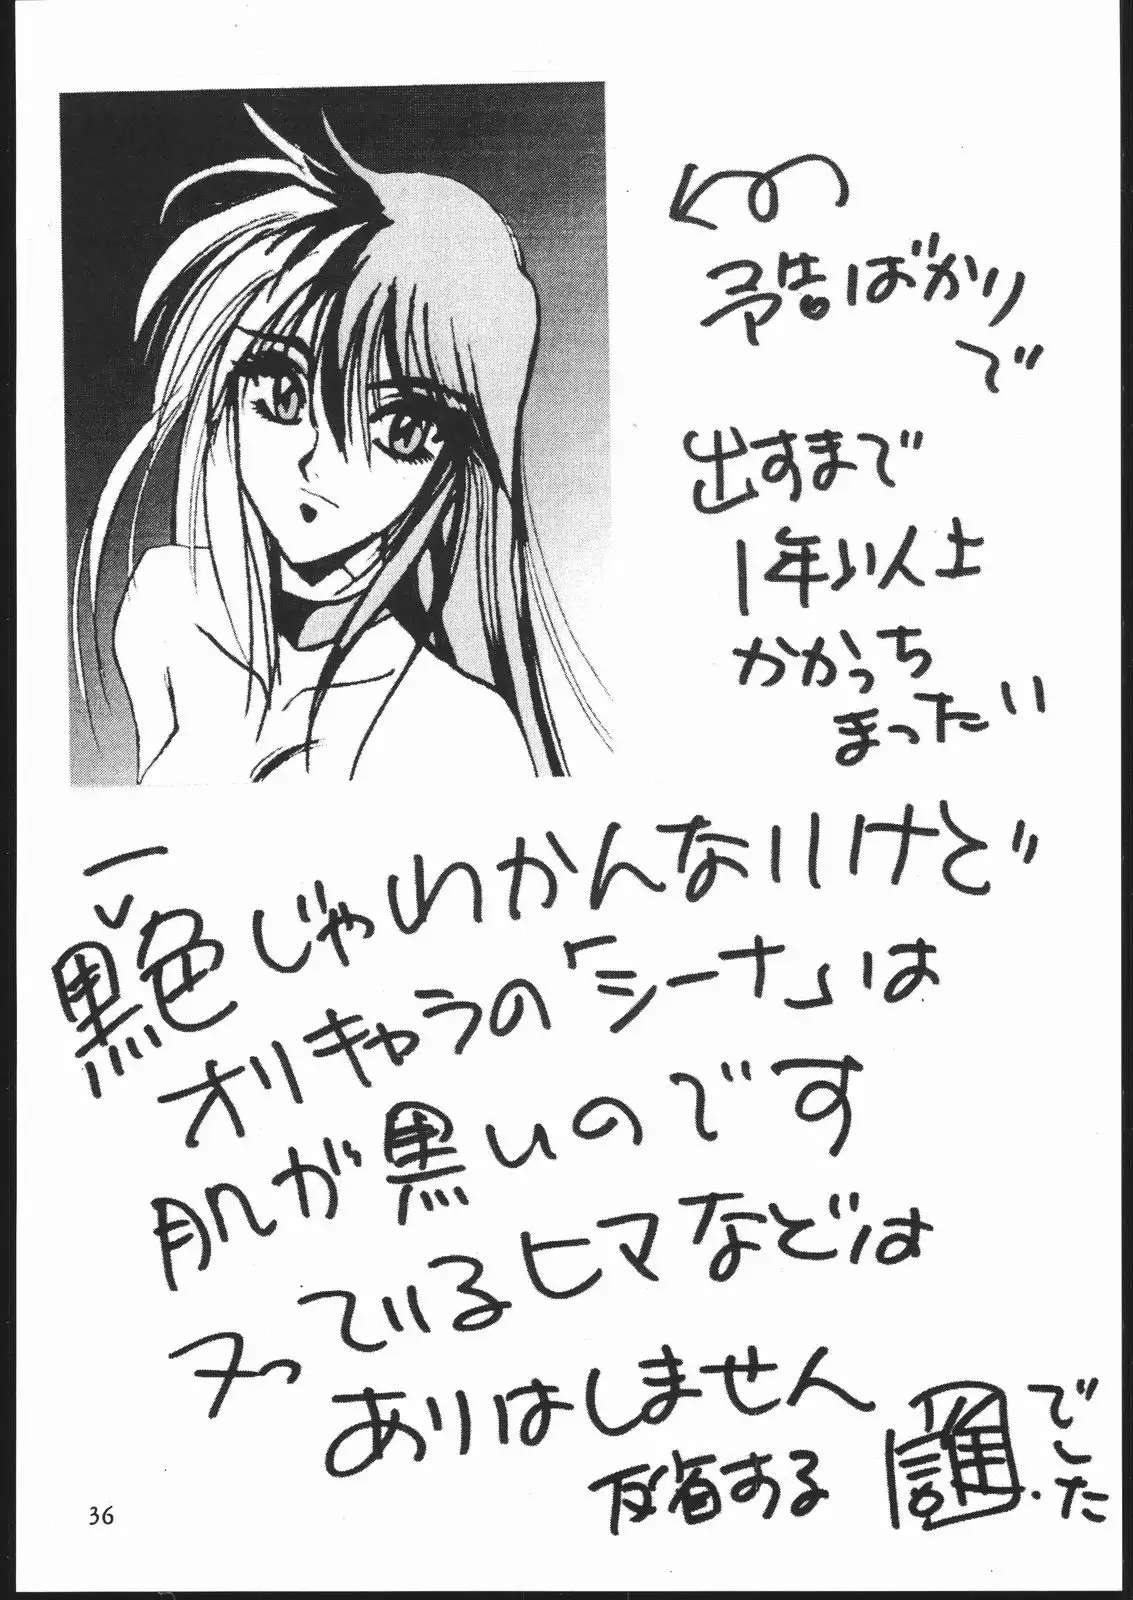 予告ばかり
で
出すまで
1年以上
かかっち
まったい
黒一色じゃわかんないけど
オリキャラの「シーナ」は
肌が黒いのです
ヌっているヒマなどは
ありはしません
反省する
でした
36